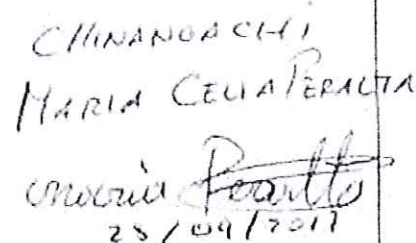 CHINANGACHI
MARIA CELIA PERALTA
Maria Peralta
25/09/2017